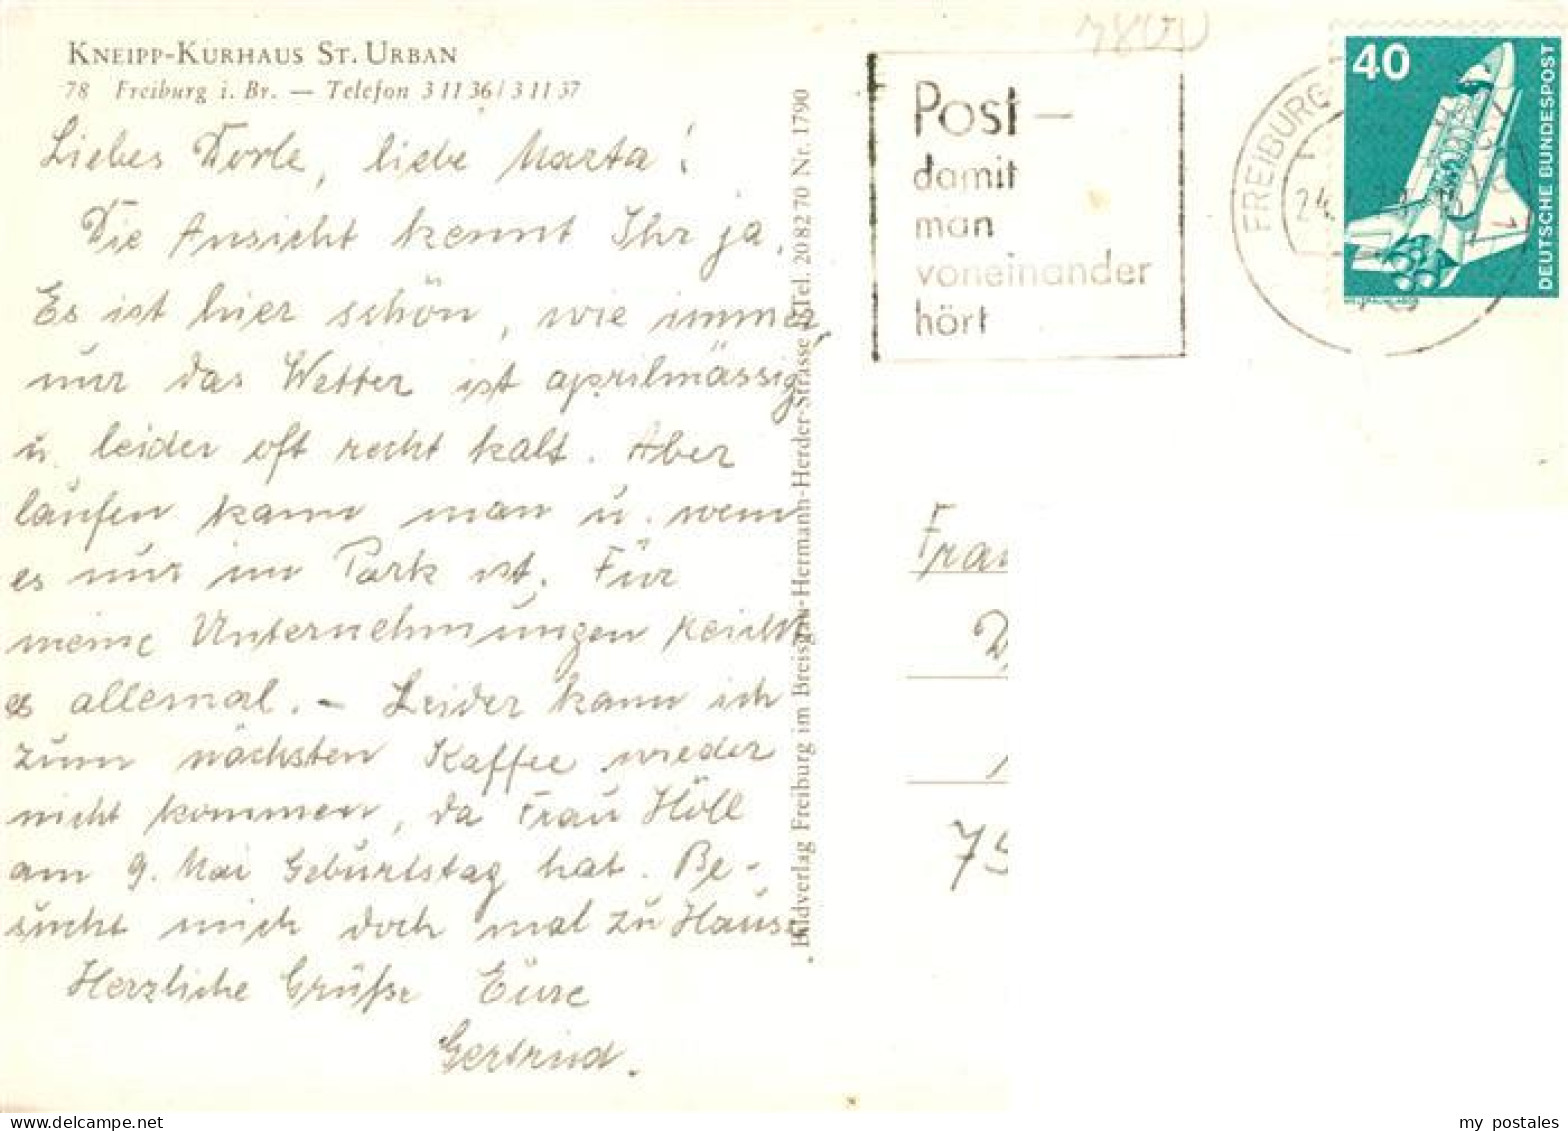 KNEIPP-KURHAUS ST. URBAN
78 Freiburg i. Br. — Telefon 3 11 36 / 3 11 37
Liebes Dorle, liebe Marta!
Die Ansicht kennt Ihr ja.
Es ist hier schön, wie immer,
nur das Wetter ist aprilmässig
u. leider oft recht kalt. Aber
laufen kann man u. wenn
es nur im Park ist. Für
meine Unternehmungen reicht
es allemal. – Leider kann ich
zum nächsten Kaffee wieder
nicht kommen, da Frau Höll
am 9. Mai Geburtstag hat. Be-
sucht mich doch mal zu Haus.
Herzliche Grüße Eure
Gertrud.
Bildverlag Freiburg im Breisgau-Hermann-Herder-Strasse Tel. 20 82 70 Nr. 1790
7800
Post –
damit
man
voneinander
hört
FREIBURG
24.
40
DEUTSCHE BUNDESPOST
Frau
D
75
my postales